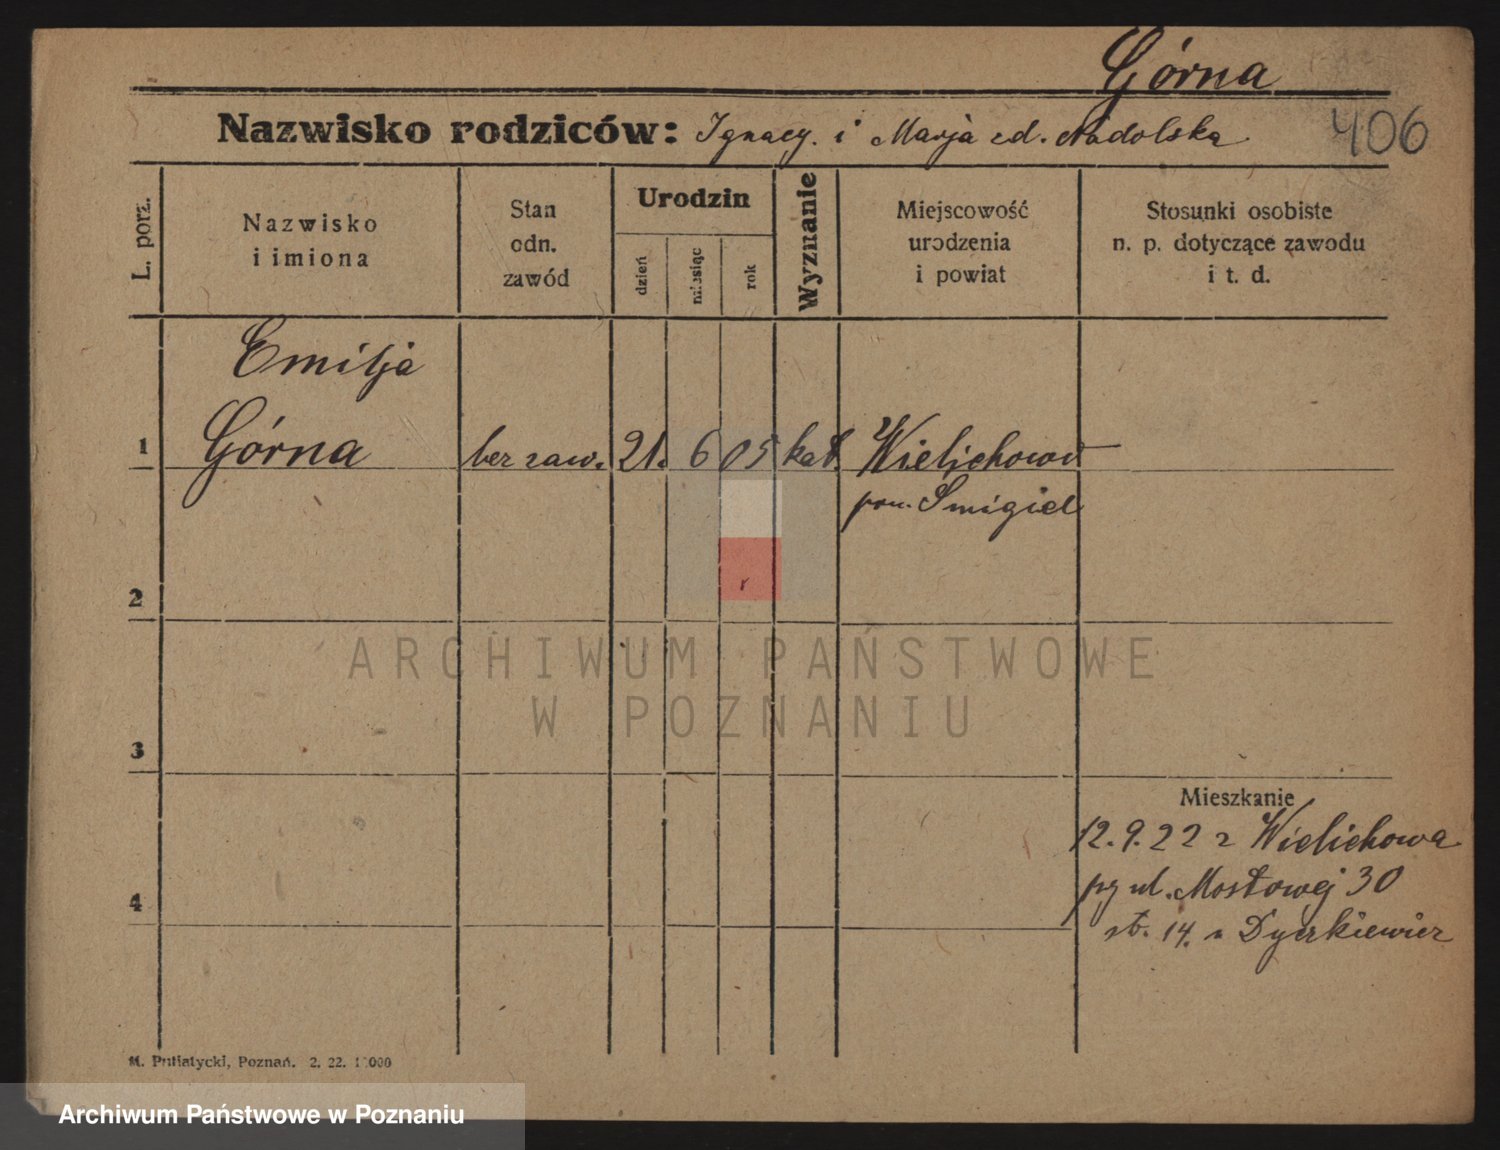 Górna
Nazwisko rodziców: Ignacy. i Marja zd. Nadolska
406
L. porz.
Nazwisko
i imiona
Stan
odn.
zawód
Urodzin
dzień
miesiąc
rok
Wyznanie
Miejscowość
urodzenia
i powiat
Stosunki osobiste
n. p. dotyczące zawodu
i t. d.
Emilja
1 Górna bez zaw. 21. 6 05 kat. Wielichowo
pow. Smigiel
2
ARCHIWUM PAŃSTWOWE
W POZNANIU
3
Mieszkanie
12.9.22 z Wielichowa
ul. Mostowej 30
4
14. Dyerkiewicz
M. Putiatycki, Poznań. 2. 22.
Archiwum Państwowe w Poznaniu